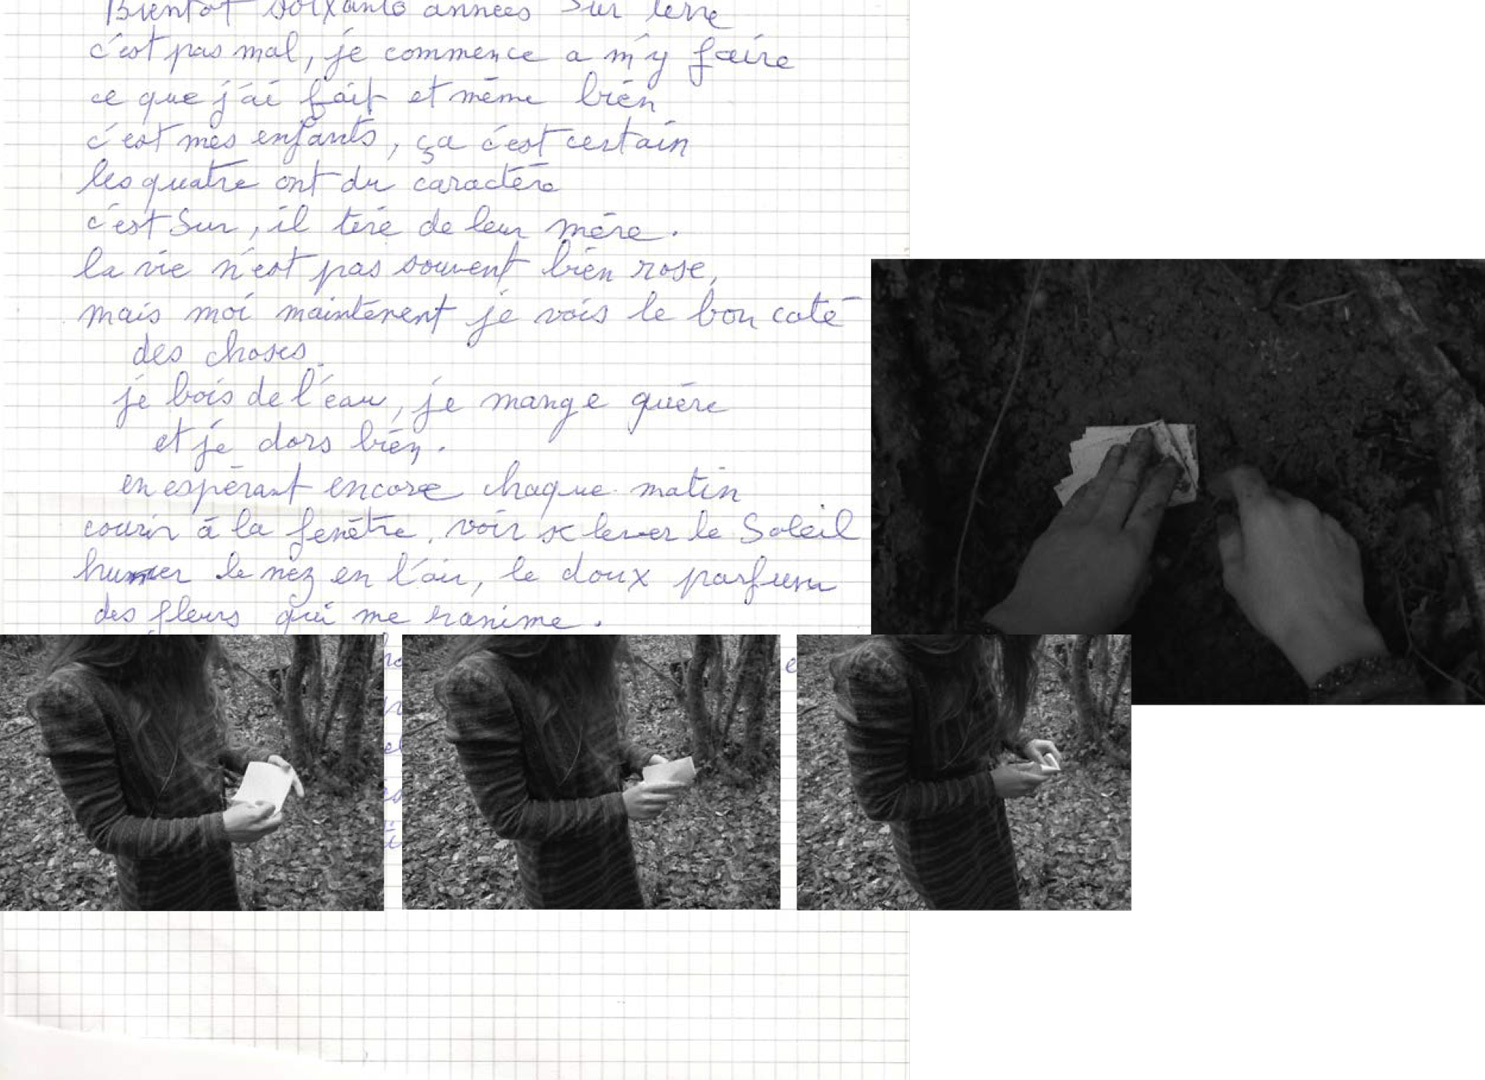 Bientôt soixante années sur terre
c'est pas mal, je commence a m'y faire
ce que j'ai fait et même bien
c'est mes enfants, ça c'est certain
les quatre ont du caractère
c'est Sur, il tire de leur mère.
la vie n'est pas souvent bien rose,
mais moi maintenent je vois le bon coté
des choses.
je bois de l'eau, je mange guère
et je dors bien.
en espérant encore chaque matin
courir à la fenêtre, voir se lever le Soleil
humer le nez en l'air, le doux parfum
des fleurs qui me ranime.